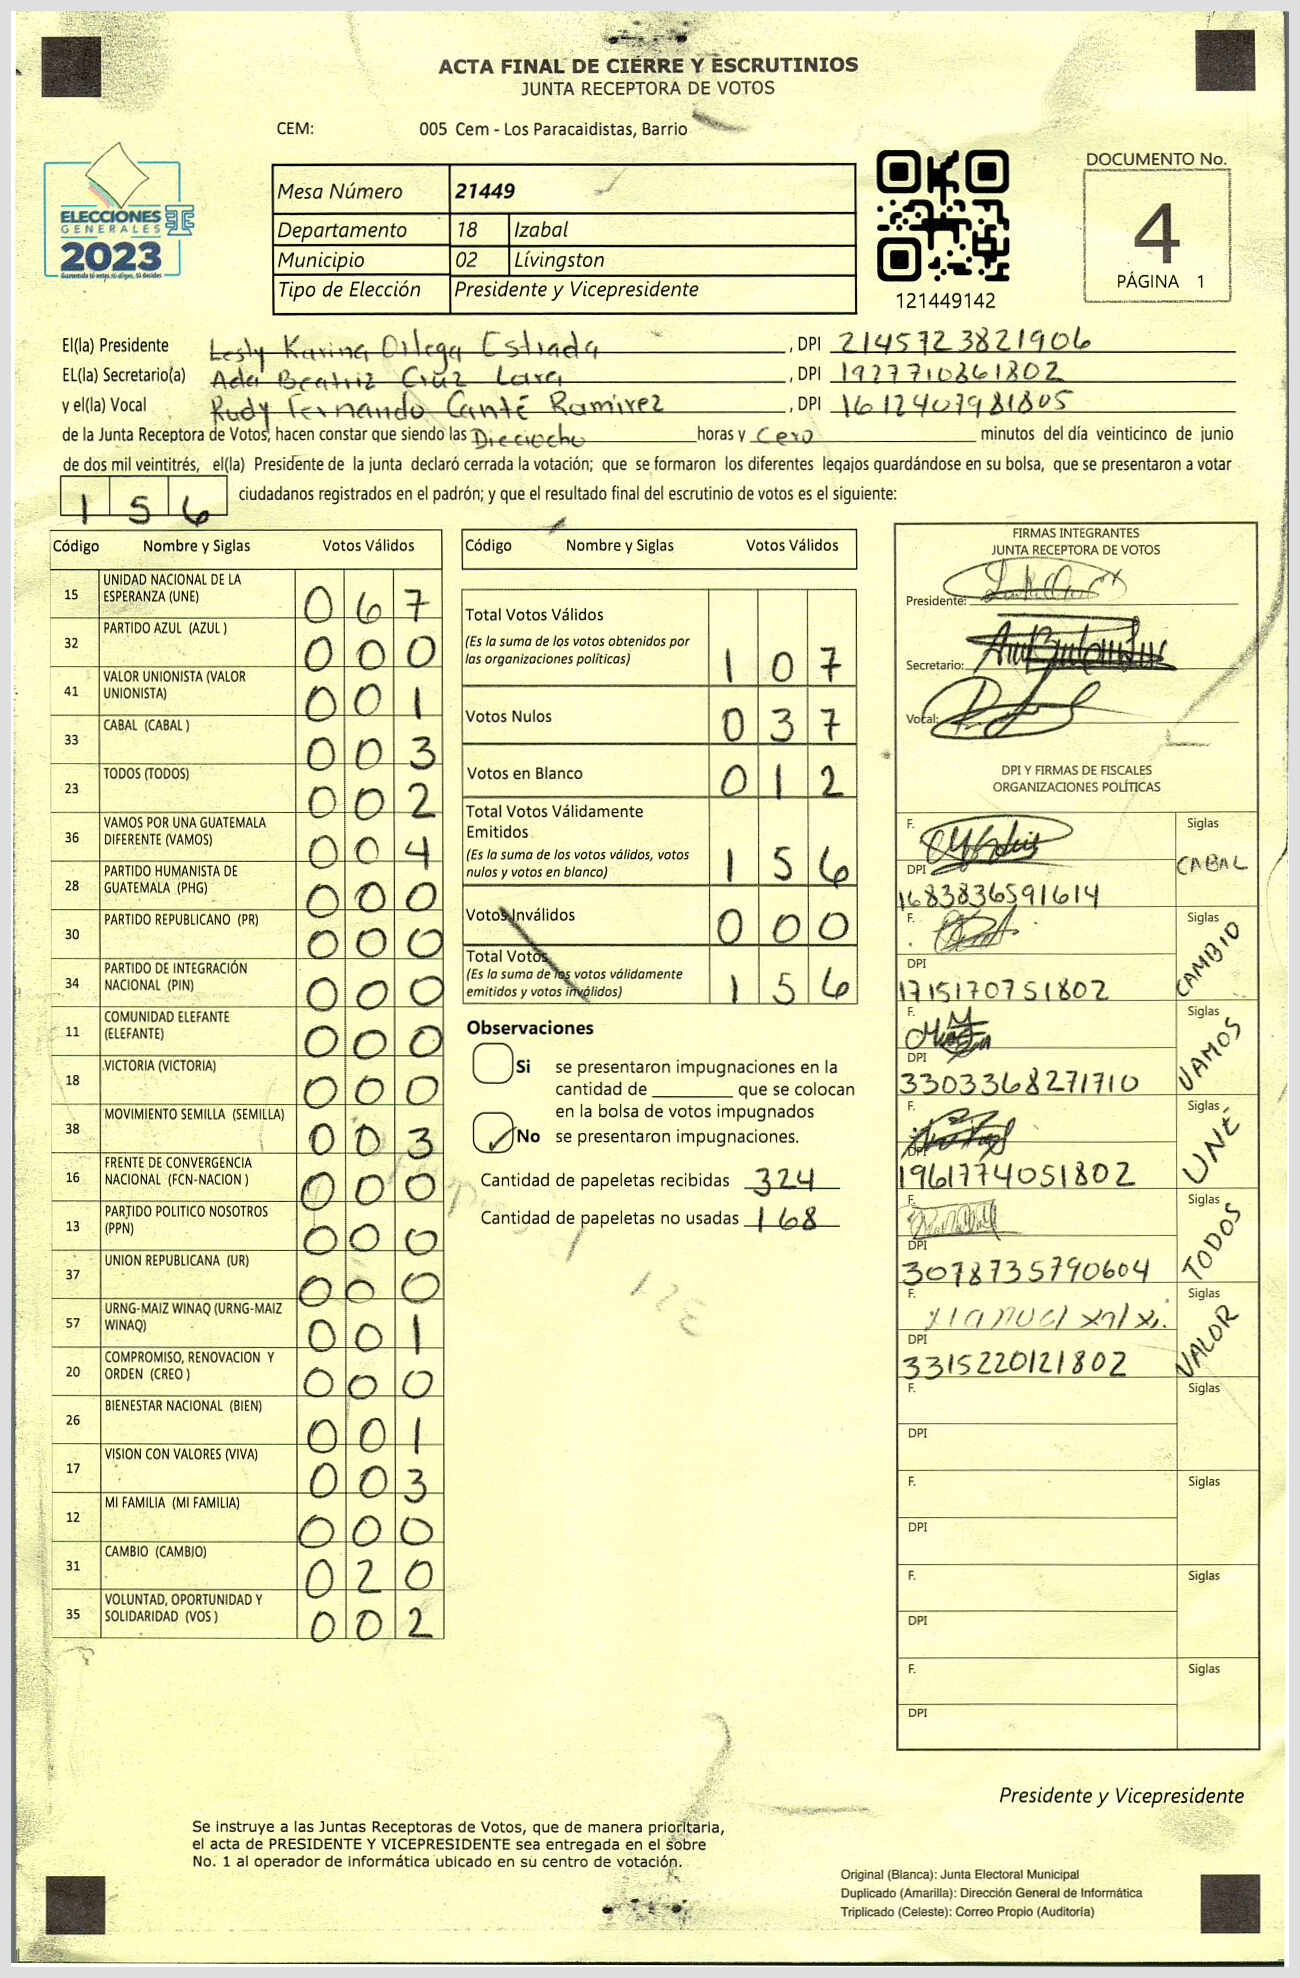 ACTA FINAL DE CIERRE Y ESCRUTINIOS
JUNTA RECEPTORA DE VOTOS
CEM: 005 Cem - Los Paracaidistas, Barrio
ELECCIONES
GENERALES
2023
Mesa Número 21449
Departamento 18 Izabal
Municipio 02 Lívingston
Tipo de Elección Presidente y Vicepresidente
121449142
DOCUMENTO No.
4
PÁGINA 1
El(la) Presidente Lesly Karina Ortega Estrada, DPI 2145723821906
EL(la) Secretario(a) Ada Beatriz Cruz Lara, DPI 1927710361802
y el(la) Vocal Rudy Fernando Canté Ramirez, DPI 1612407981805
de la Junta Receptora de Votos, hacen constar que siendo las Dieciocho horas y Cero minutos del día veinticinco de junio
de dos mil veintitrés, el(la) Presidente de la junta declaró cerrada la votación; que se formaron los diferentes legajos guardándose en su bolsa, que se presentaron a votar
156 ciudadanos registrados en el padrón; y que el resultado final del escrutinio de votos es el siguiente:
Código Nombre y Siglas Votos Válidos
15 UNIDAD NACIONAL DE LA ESPERANZA (UNE) 067
32 PARTIDO AZUL (AZUL ) 000
41 VALOR UNIONISTA (VALOR UNIONISTA) 001
33 CABAL (CABAL ) 003
23 TODOS (TODOS) 002
36 VAMOS POR UNA GUATEMALA DIFERENTE (VAMOS) 004
28 PARTIDO HUMANISTA DE GUATEMALA (PHG) 000
30 PARTIDO REPUBLICANO (PR) 000
34 PARTIDO DE INTEGRACIÓN NACIONAL (PIN) 000
11 COMUNIDAD ELEFANTE (ELEFANTE) 000
18 VICTORIA (VICTORIA) 000
38 MOVIMIENTO SEMILLA (SEMILLA) 003
16 FRENTE DE CONVERGENCIA NACIONAL (FCN-NACION ) 000
13 PARTIDO POLITICO NOSOTROS (PPN) 000
37 UNION REPUBLICANA (UR) 000
57 URNG-MAIZ WINAQ (URNG-MAIZ WINAQ) 001
20 COMPROMISO, RENOVACION Y ORDEN (CREO ) 000
26 BIENESTAR NACIONAL (BIEN) 001
17 VISION CON VALORES (VIVA) 003
12 MI FAMILIA (MI FAMILIA) 000
31 CAMBIO (CAMBIO) 020
35 VOLUNTAD, OPORTUNIDAD Y SOLIDARIDAD (VOS ) 002
Código Nombre y Siglas Votos Válidos
Total Votos Válidos 107
(Es la suma de los votos obtenidos por
las organizaciones políticas)
Votos Nulos 037
Votos en Blanco 012
Total Votos Válidamente
Emitidos 156
(Es la suma de los votos válidos, votos
nulos y votos en blanco)
Votos Inválidos 000
Total Votos 156
(Es la suma de los votos válidamente
emitidos y votos inválidos)
Observaciones
Si se presentaron impugnaciones en la
cantidad de ________ que se colocan
en la bolsa de votos impugnados
No se presentaron impugnaciones.
Cantidad de papeletas recibidas 324
Cantidad de papeletas no usadas 168
321
FIRMAS INTEGRANTES
JUNTA RECEPTORA DE VOTOS
Presidente:
Secretario:
Vocal:
DPI Y FIRMAS DE FISCALES
ORGANIZACIONES POLÍTICAS
F. Siglas CABAL
DPI 1683836591614
F. Siglas CAMBIO
DPI 1715170751802
F. Siglas VAMOS
DPI 3303368271710
F. Siglas UNE
DPI 1961774051802
F. Siglas TODOS
DPI 3078735790604
F. Siglas VALOR
DPI 3315220121802
F. Siglas
DPI
F. Siglas
DPI
F. Siglas
DPI
F. Siglas
DPI
Presidente y Vicepresidente
Se instruye a las Juntas Receptoras de Votos, que de manera prioritaria,
el acta de PRESIDENTE Y VICEPRESIDENTE sea entregada en el sobre
No. 1 al operador de informática ubicado en su centro de votación.
Original (Blanca): Junta Electoral Municipal
Duplicado (Amarilla): Dirección General de Informática
Triplicado (Celeste): Correo Propio (Auditoría)